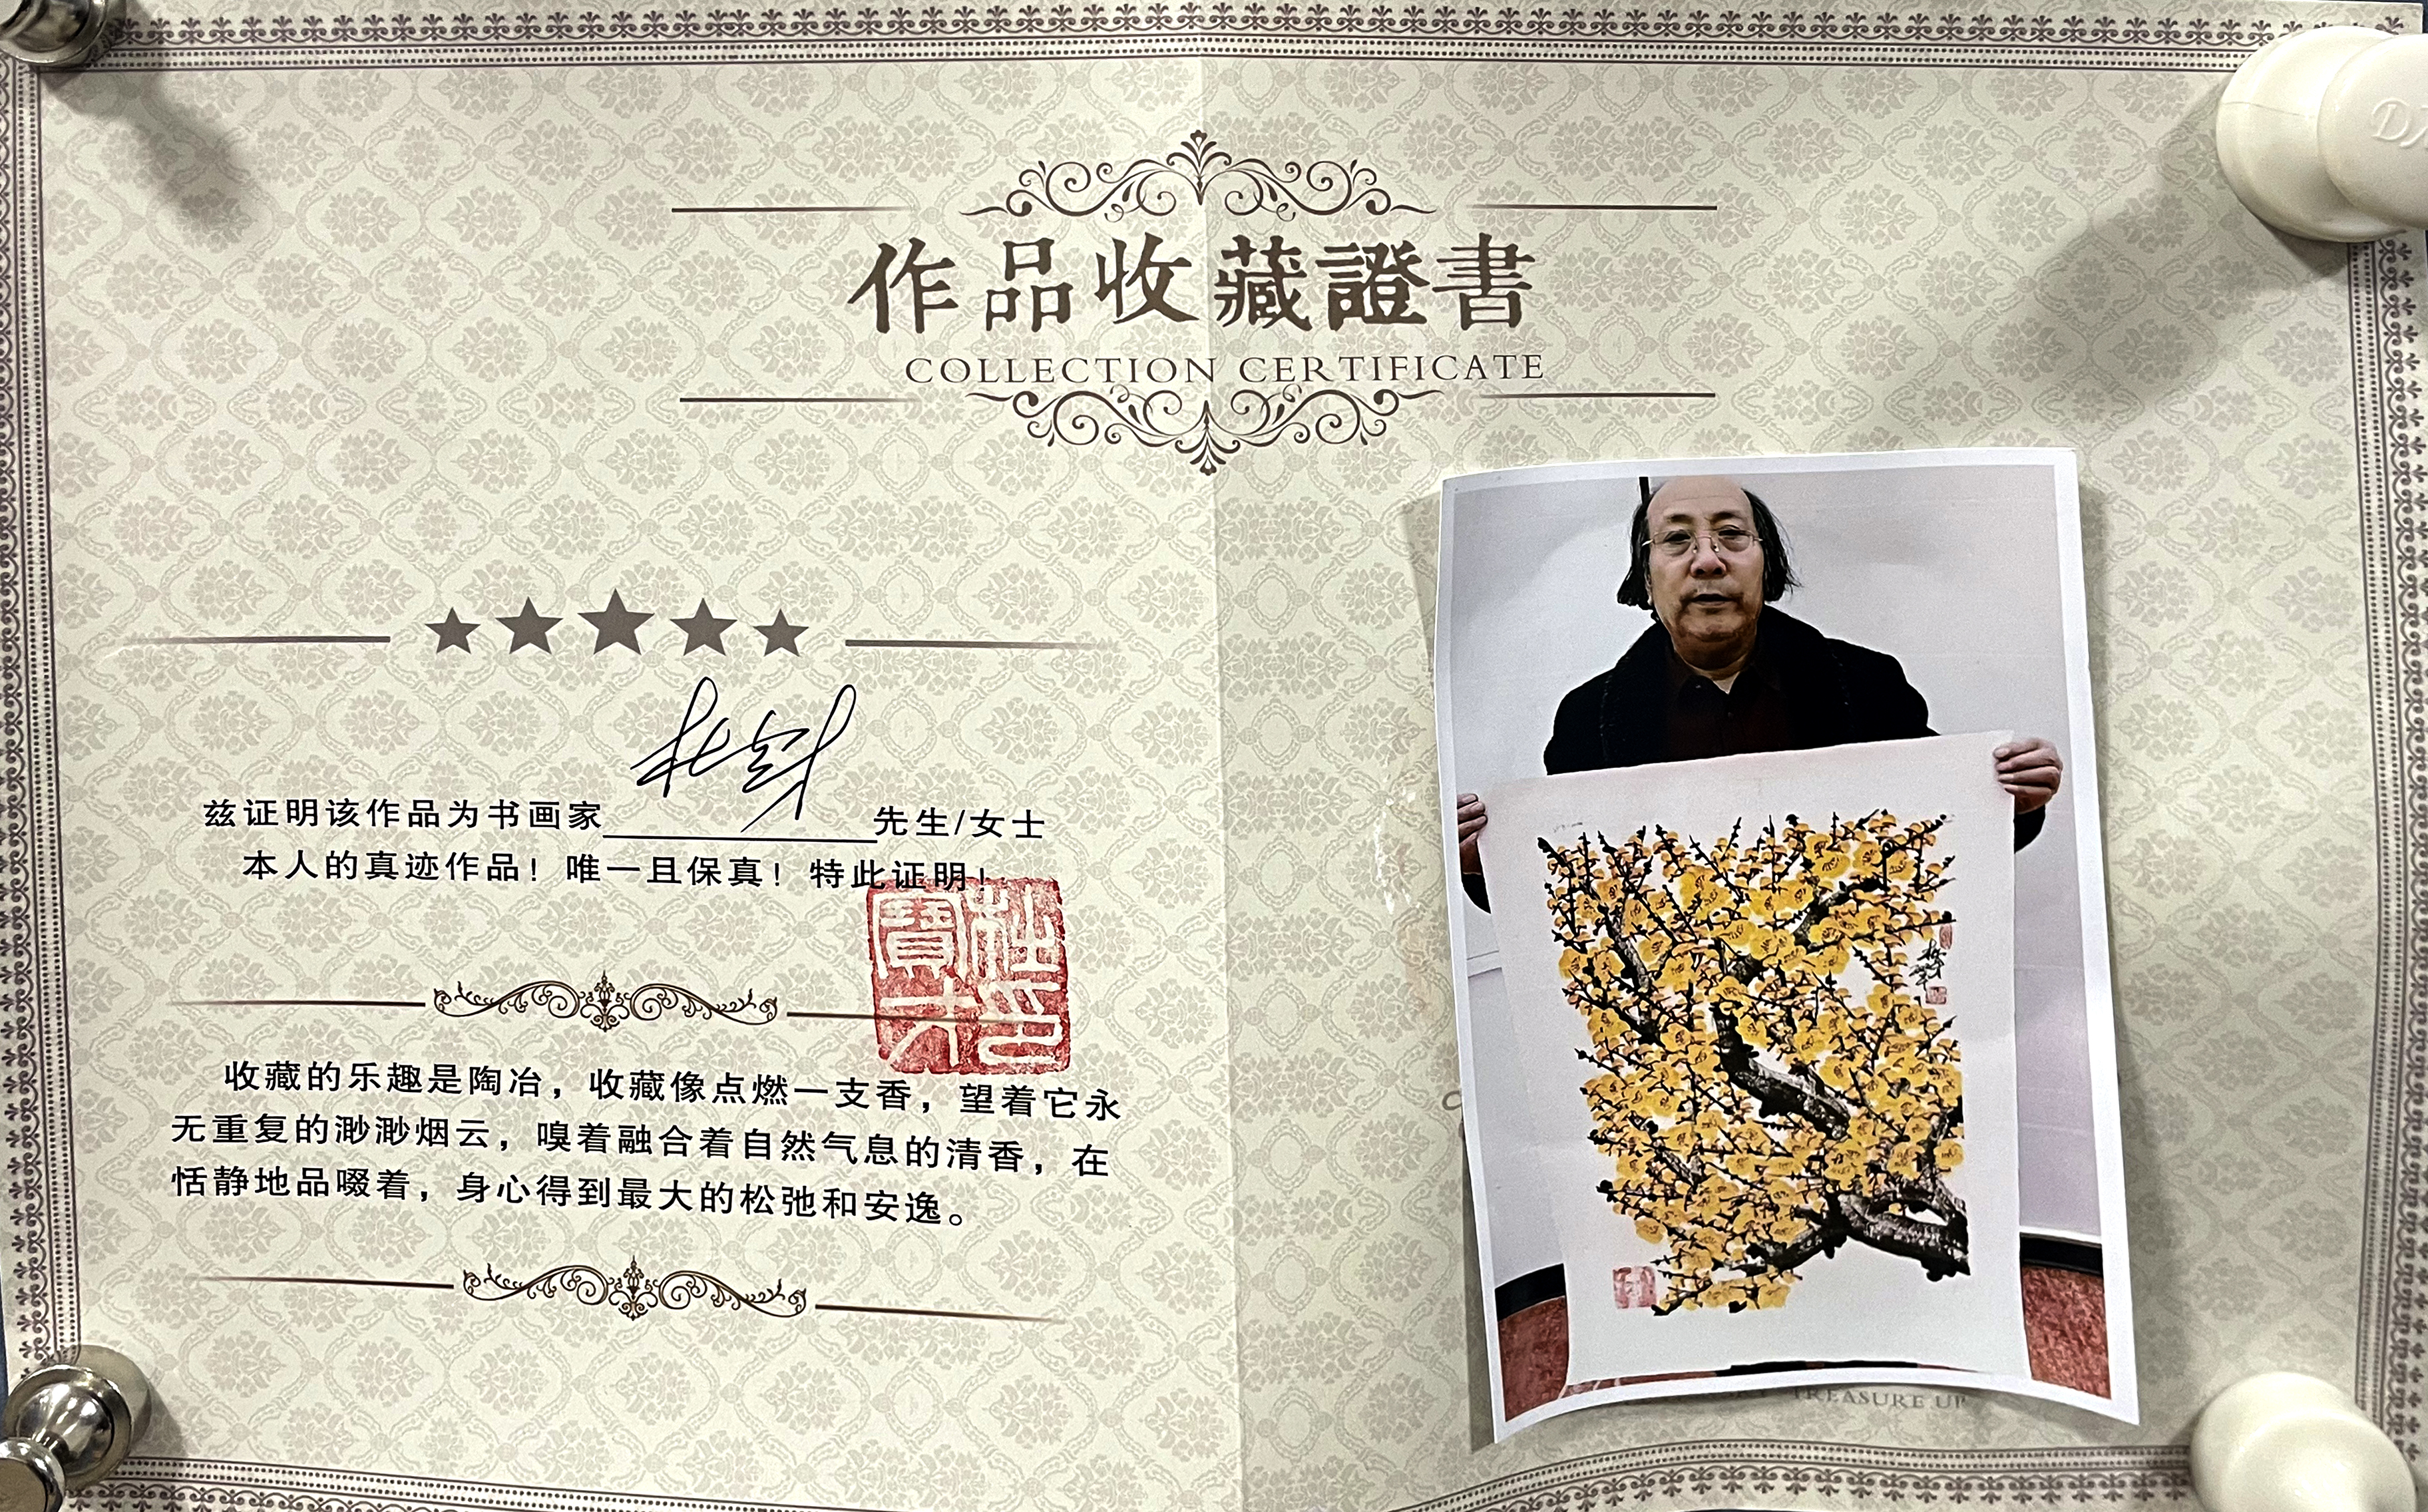 作品收藏證書
COLLECTION CERTIFICATE
兹证明该作品为书画家 先生/女士
本人的真迹作品！唯一且保真！特此证明！
杜寶才印
收藏的乐趣是陶冶，收藏像点燃一支香，望着它永
无重复的渺渺烟云，嗅着融合着自然气息的清香，在
恬静地品啜着，身心得到最大的松弛和安逸。
TREASURE UP